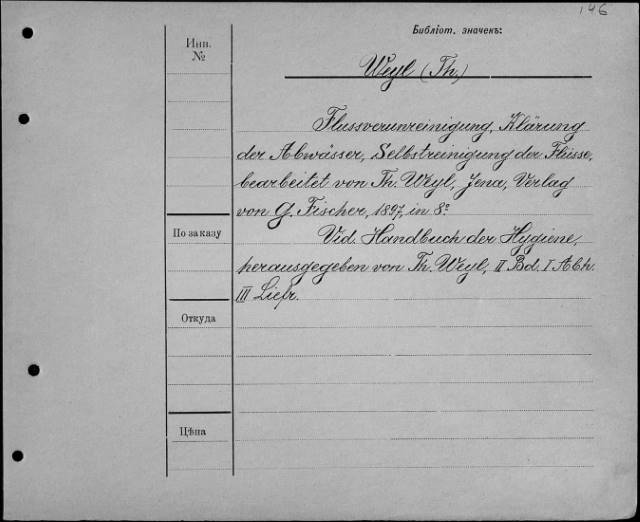 146
Библіот. значекъ:
Инв.
№
Weyl (Th.)
Flussverunreinigung, Klärung
der Abwässer, Selbstreinigung der Flüsse,
bearbeitet von Th. Weyl, Jena, Verlag
von G. Fischer, 1897, in 8º
По заказу
Vid. Handbuch der Hygiene,
herausgegeben von Th. Weyl, II Bd. I Abh.
III Liefr.
Откуда
Цѣна